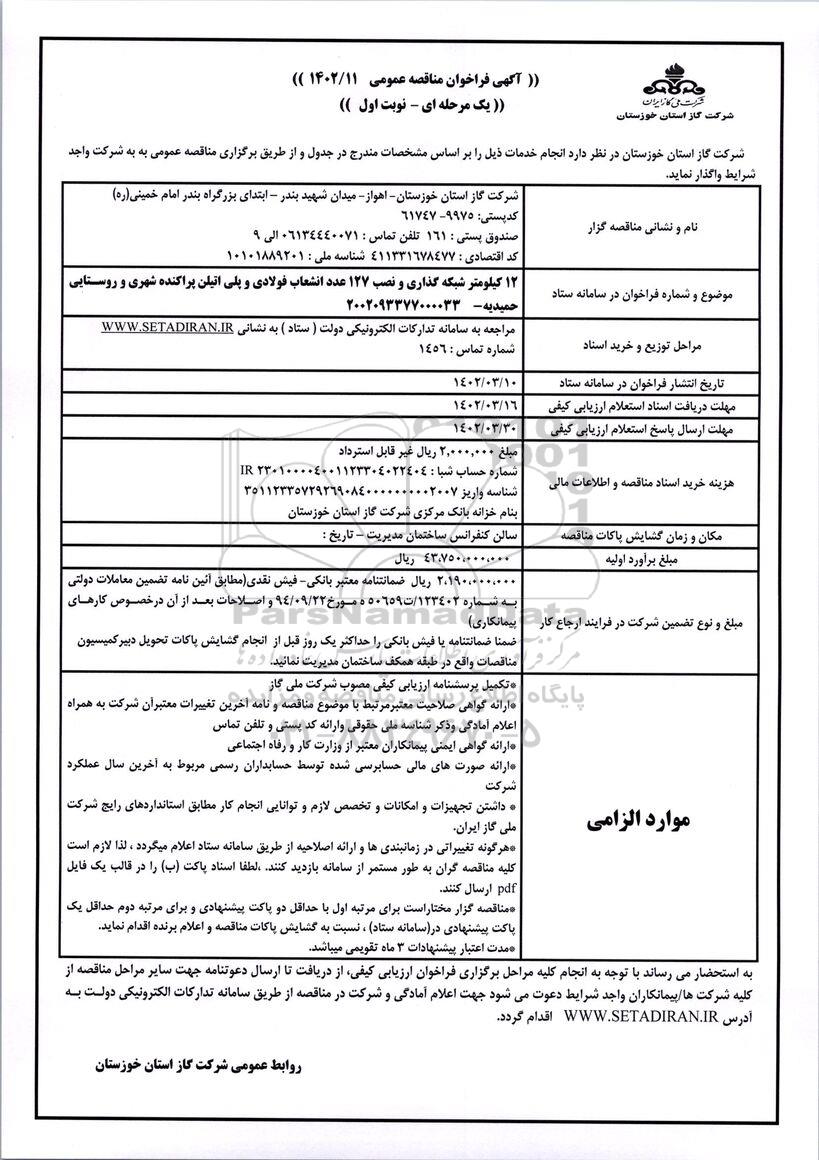 (( آگهی فراخوان مناقصه عمومی ۱۴۰۲/۱۱ ))
(( یک مرحله ای – نوبت اول ))
شرکت ملی گاز ایران
شرکت گاز استان خوزستان
شرکت گاز استان خوزستان در نظر دارد انجام خدمات ذیل را بر اساس مشخصات مندرج در جدول و از طریق برگزاری مناقصه عمومی به به شرکت واجد
شرایط واگذار نماید.
نام و نشانی مناقصه گزار
شرکت گاز استان خوزستان- اهواز- میدان شهید بندر – ابتدای بزرگراه بندر امام خمینی(ره)
کدپستی: ۹۹۷۵- ۶۱۷۴۷
صندوق پستی : ۱۶۱ تلفن تماس : ۰۶۱۳۴۴۴۰۰۷۱ الی ۹
کد اقتصادی : ۴۱۱۳۳۱۶۷۸۴۷۷ شناسه ملی : ۱۰۱۰۱۸۸۹۲۰۱
موضوع و شماره فراخوان در سامانه ستاد
۱۲ کیلومتر شبکه گذاری و نصب ۱۲۷ عدد انشعاب فولادی و پلی اتیلن پراکنده شهری و روستایی
حمیدیه- ۲۰۰۲۰۹۳۳۷۷۰۰۰۰۳۳
مراحل توزیع و خرید اسناد
مراجعه به سامانه تدارکات الکترونیکی دولت ( ستاد ) به نشانی WWW.SETADIRAN.IR
شماره تماس : ۱۴۵۶
تاریخ انتشار فراخوان در سامانه ستاد
۱۴۰۲/۰۳/۱۰
مهلت دریافت اسناد استعلام ارزیابی کیفی
۱۴۰۲/۰۳/۱۶
مهلت ارسال پاسخ استعلام ارزیابی کیفی
۱۴۰۲/۰۳/۳۰
هزینه خرید اسناد مناقصه و اطلاعات مالی
مبلغ ۲,۰۰۰,۰۰۰ ریال غیر قابل استرداد
شماره حساب شبا : IR ۲۳۰۱۰۰۰۰۴۰۰۱۱۲۳۳۰۴۰۲۲۴۰۴
شناسه واریز ۳۵۱۱۲۳۳۵۷۲۹۲۶۹۰۸۴۰۰۰۰۰۰۰۰۰۲۰۰۷
بنام خزانه بانک مرکزی شرکت گاز استان خوزستان
مکان و زمان گشایش پاکات مناقصه
سالن کنفرانس ساختمان مدیریت – تاریخ :
مبلغ برآورد اولیه
۴۳,۷۵۰,۰۰۰,۰۰۰ ریال
مبلغ و نوع تضمین شرکت در فرایند ارجاع کار
۲,۱۹۰,۰۰۰,۰۰۰ ریال ضمانتنامه معتبر بانکی- فیش نقدی(مطابق آئین نامه تضمین معاملات دولتی
به شماره ۱۲۳۴۰۲/ت۵۰۶۵۹ ه مورخ۹۴/۰۹/۲۲ و اصلاحات بعد از آن درخصوص کارهای
پیمانکاری)
ضمنا ضمانتنامه یا فیش بانکی را حداکثر یک روز قبل از انجام گشایش پاکات تحویل دبیرکمیسیون
مناقصات واقع در طبقه همکف ساختمان مدیریت نمائید.
موارد الزامی
*تکمیل پرسشنامه ارزیابی کیفی مصوب شرکت ملی گاز
*ارائه گواهی صلاحیت معتبرمرتبط با موضوع مناقصه و نامه آخرین تغییرات معتبرآن شرکت به همراه
اعلام آمادگی وذکر شناسه ملی حقوقی وارائه کد پستی و تلفن تماس
*ارائه گواهی ایمنی پیمانکاران معتبر از وزارت کار و رفاه اجتماعی
*ارائه صورت های مالی حسابرسی شده توسط حسابداران رسمی مربوط به آخرین سال عملکرد
شرکت
* داشتن تجهیزات و امکانات و تخصص لازم و توانایی انجام کار مطابق استانداردهای رایج شرکت
ملی گاز ایران.
*هرگونه تغییراتی در زمانبندی ها و ارائه اصلاحیه از طریق سامانه ستاد اعلام میگردد ، لذا لازم است
کلیه مناقصه گران به طور مستمر از سامانه بازدید کنند. ،لطفا اسناد پاکت (ب) را در قالب یک فایل
pdf ارسال کنند.
*مناقصه گزار مختاراست برای مرتبه اول با حداقل دو پاکت پیشنهادی و برای مرتبه دوم حداقل یک
پاکت پیشنهادی در(سامانه ستاد) ، نسبت به گشایش پاکات مناقصه و اعلام برنده اقدام نماید.
*مدت اعتبار پیشنهادات ۳ ماه تقویمی میباشد.
به استحضار می رساند با توجه به انجام کلیه مراحل برگزاری فراخوان ارزیابی کیفی، از دریافت تا ارسال دعوتنامه جهت سایر مراحل مناقصه از
کلیه شرکت ها/پیمانکاران واجد شرایط دعوت می شود جهت اعلام آمادگی و شرکت در مناقصه از طریق سامانه تدارکات الکترونیکی دولت به
آدرس WWW.SETADIRAN.IR اقدام گردد.
روابط عمومی شرکت گاز استان خوزستان
ParsNamadData
پایگاه اطلاع رسانی مناقصه و مزایده
۰۲۱-۸۸۳۴۹۶۷۰-۵